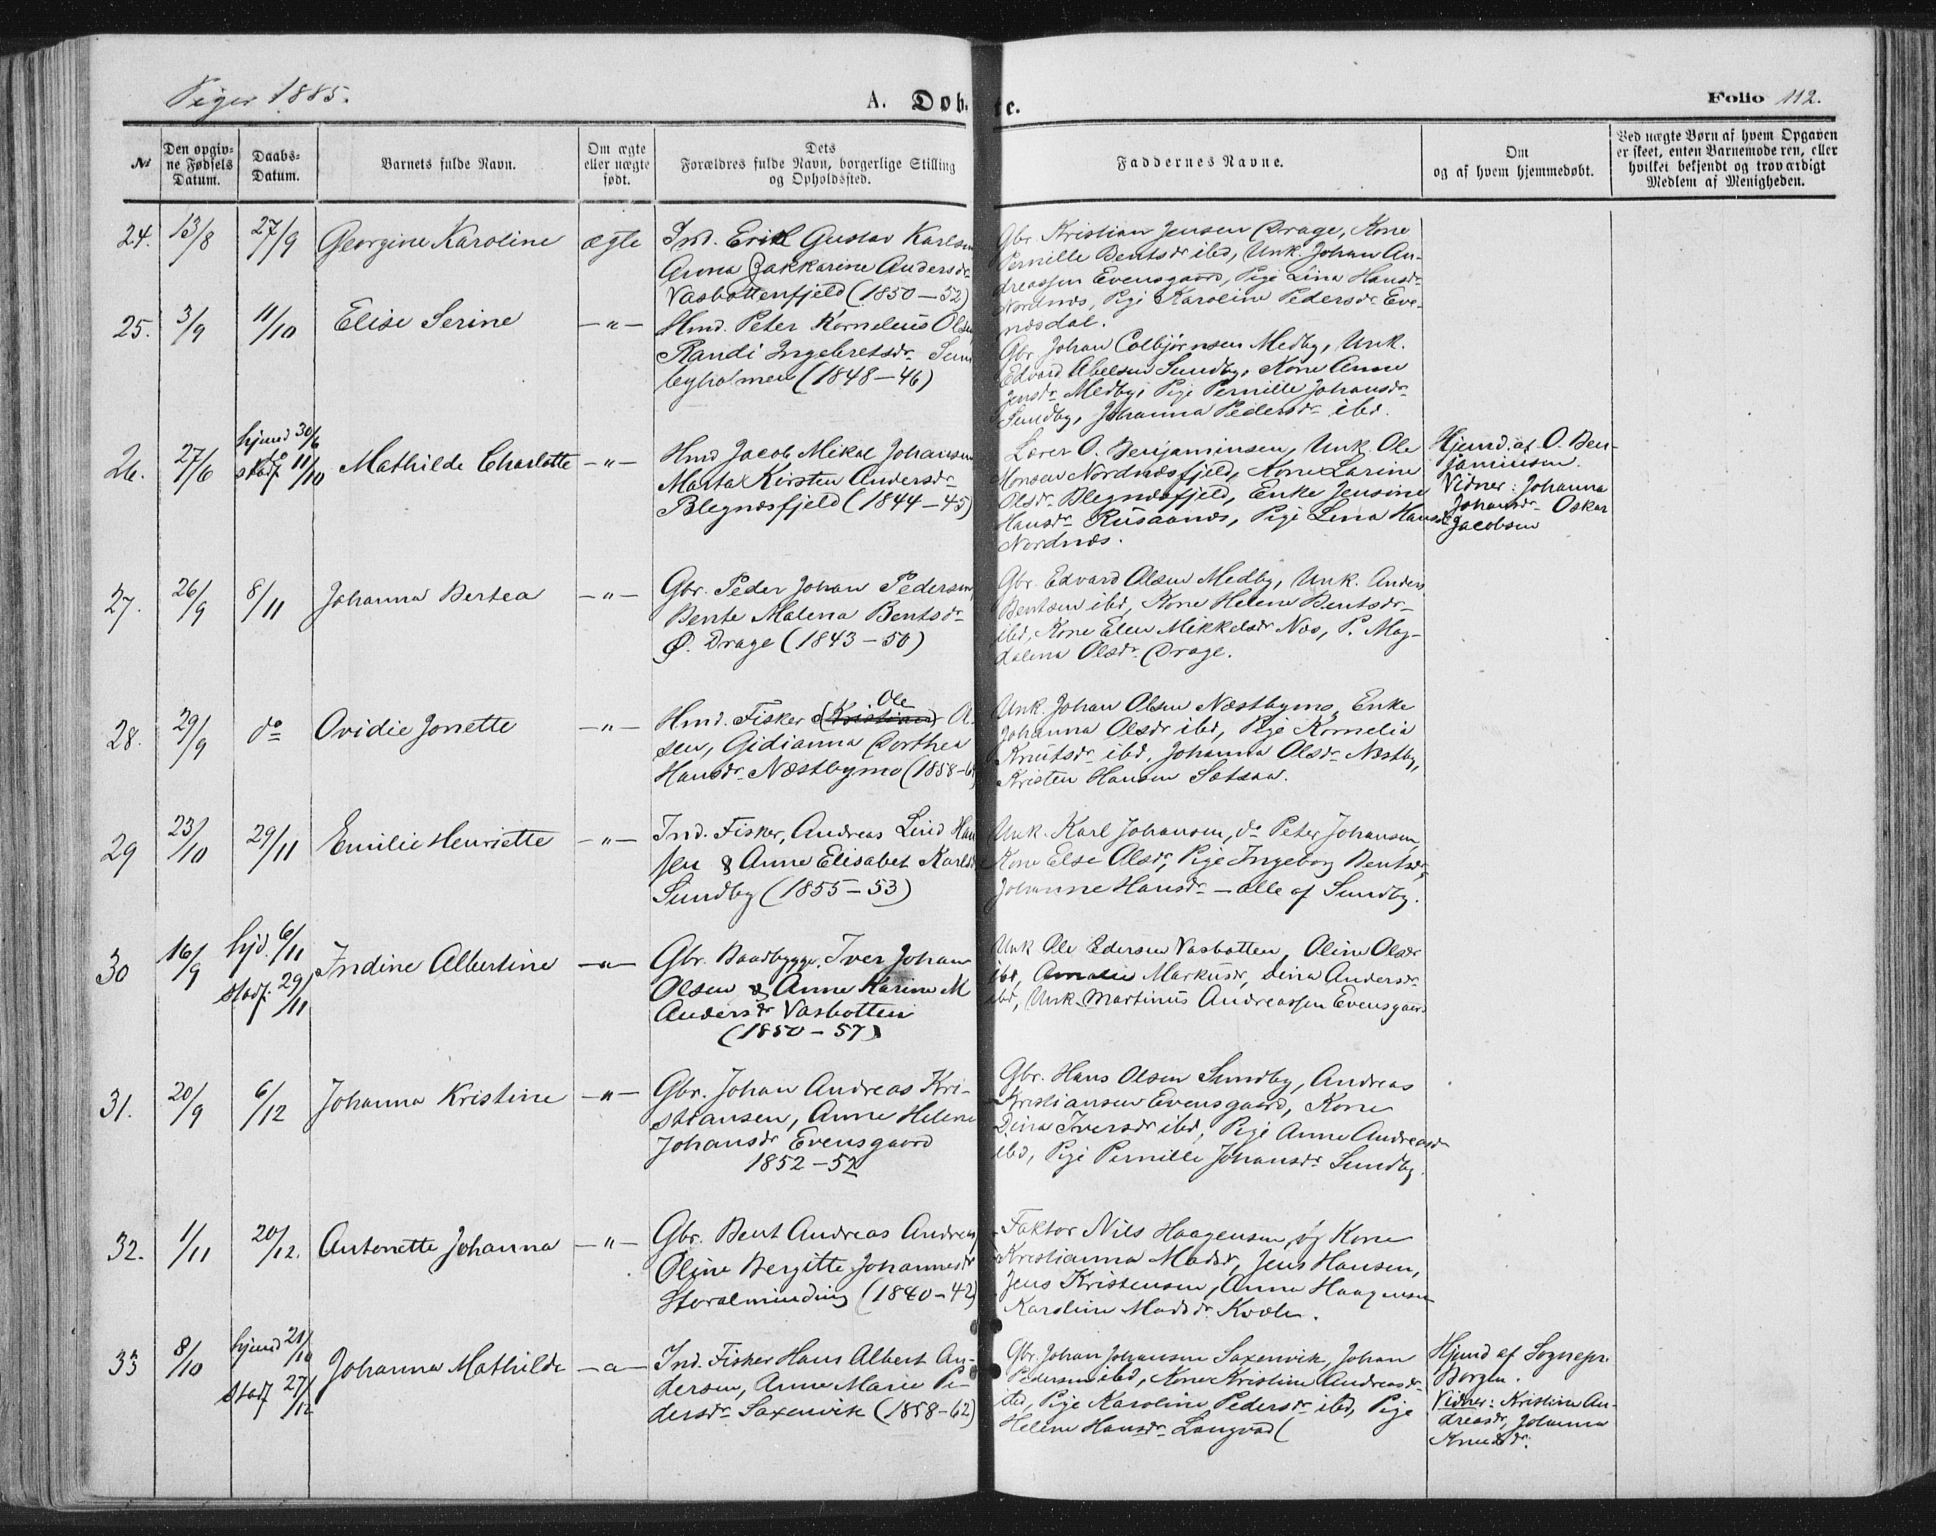 Piger 1885.
A. Døbte.
Folio 112.
№
Den opgiv-
ne Fødsels
Datum.
Daabs-
Datum.
Barnets fulde Navn.
Om ægte
eller uægte
født.
Dets
Forældres fulde Navn, borgerlige Stilling
og Opholdssted.
Faddernes Navne.
Om
og af hvem hjemmedøbt.
Ved uægte Børn af hvem Opgaven
er skeet, enten Barnemoderen, eller
hvilket bekjendt og troværdigt
Medlem af Menigheden.
24. 13/8 27/9 Georgine Karoline ægte
Ind. Erik Gustav Karlsen
Anna Zakkarine Andersdr
Vasbottenfjeld (1850-52)
Gbr. Kristian Jensen Drage, Kone
Pernille Bentsdr ibd, Unk. Johan An-
dreassen Evensgaard, Pige Lina Hansdr
Nordnæs, Pige Karoline Pedersdr Eve-
næsdal.
25. 3/9 11/10 Elise Serine -"-
Hmd. Peter Kornelius Olsen
Randi Ingebretsdr Sund
byholmen (1848-46)
Gbr Johan Colbjørnsen Medby, Unk.
Edvard Abelsen Sundby, Kone Anne
Jensdr Medby, Pige Pernille Johansdr
Sundby, Johanna Pedersdr ibd.
26. 27/6 hjmd 30/6
stadf. 11/10 Mathilde Charlotte -"-
Hmd Jacob Mikal Johansen
Marta Kirsten Andersdr
Blegnæsfjeld (1844-45)
Lærer O. Benjaminsen, Unk. Ole
Monsen Nordnæsfjeld, Kone Larine
Olsdr Blegnæsfjeld, Enke Jensine
Hansdr Rusaanæs, Pige Lena Hansdr
Nordnæs.
Hjemd. af O. Ben-
jaminsen.
Vidner: Johanna
Johansdr Oskar
Jacobsen
27. 26/9 8/11 Johanna Bertea -"-
Gbr. Peder Johan Pedersen
Bente Malena Bentsdr
Ø. Drage (1843-50)
Gbr. Edvard Olsen Medby, Unk. Anders
Bentsen ibd, Kone Helene Bentsdr
ibd, Kone Elen Mikkelsdr Næs, P. Mag-
dalena Olsdr Drage.
28. 29/9 do Ovidie Jonette -"-
Hmd. Fisker (Kristian) Ole A.
sen, Gidianna Dorthea
Hansdr Næstbymo (1858-6
Unk. Johan Olsen Næstbymo, Enke
Johanna Olsdr ibd, Pige Kornelia
Knutsdr ibd, Johanna Olsdr Næstby,
Kristen Hansen Sætsaa.
29 23/10 29/11 Emilie Henriette -"-
Ind. Fisker, Andreas Lind Han
sen & Anne Elisabet Karlsdr
Sundby (1855-53)
Unk. Karl Johansen, do Peter Johansen,
Kone Else Olsdr, Pige Ingeborg Bentsdr,
Johanne Hansdr - alle af Sundby.
30 16/9 hjd. 6/11
stadf. 29/11 Indine Albertine -"-
Gbr. Baadbygger, Iver Johan
Olsen & Anne Karine M
Andersdr Vasbotten
(1850-57)
Unk Ole Edersen Vasbotten, Oline Olsdr
ibd, Amalie Markusdr, Dina Andersdr
ibd, Unk. Martinus Andreassen Evensgaard
31. 20/9 6/12 Johanna Kristine -"-
Gbr. Johan Andreas Kri-
stiansen, Anne Helene
Johansdr Evensgaard
1852-52
Gbr. Hans Olsen Sundby, Andreas
Kristiansen Evensgaard, Kone
Dina Iversdr ibd, Pige Anne Andreasdr
ibd, Pige Pernille Johansdr Sundby.
32. 1/11 20/12. Antonette Johanna -"-
Gbr. Bent Andreas Andreas
Oline Bergitte Johannesdr
Storalminding (1840-42)
Faktor Nils Haagensen og Kone
Kristianna Madsdr, Jens Hansen,
Jens Kristensen, Anna Haagensen
Karoline Madsdr Kvæle.
33 8/10 hjmd 21/10
stadf 27/12 Johanna Mathilde -"-
Ind. Fisker Hans Albert An-
dersen, Anne Marie Pe-
dersdr Saxenvik (1858-62)
Gbr. Johan Johansen Saxenvik, Johan
Pedersen ibd, Kone Kristine Andreasdr
ibd, Pige Karoline Pedersdr ibd, Pige
Helene Hansdr Langvad (
Hjmd af Sognepr.
Borgen.
Vidner: Kristine An-
dreasdr, Johanna
Knudsdr.